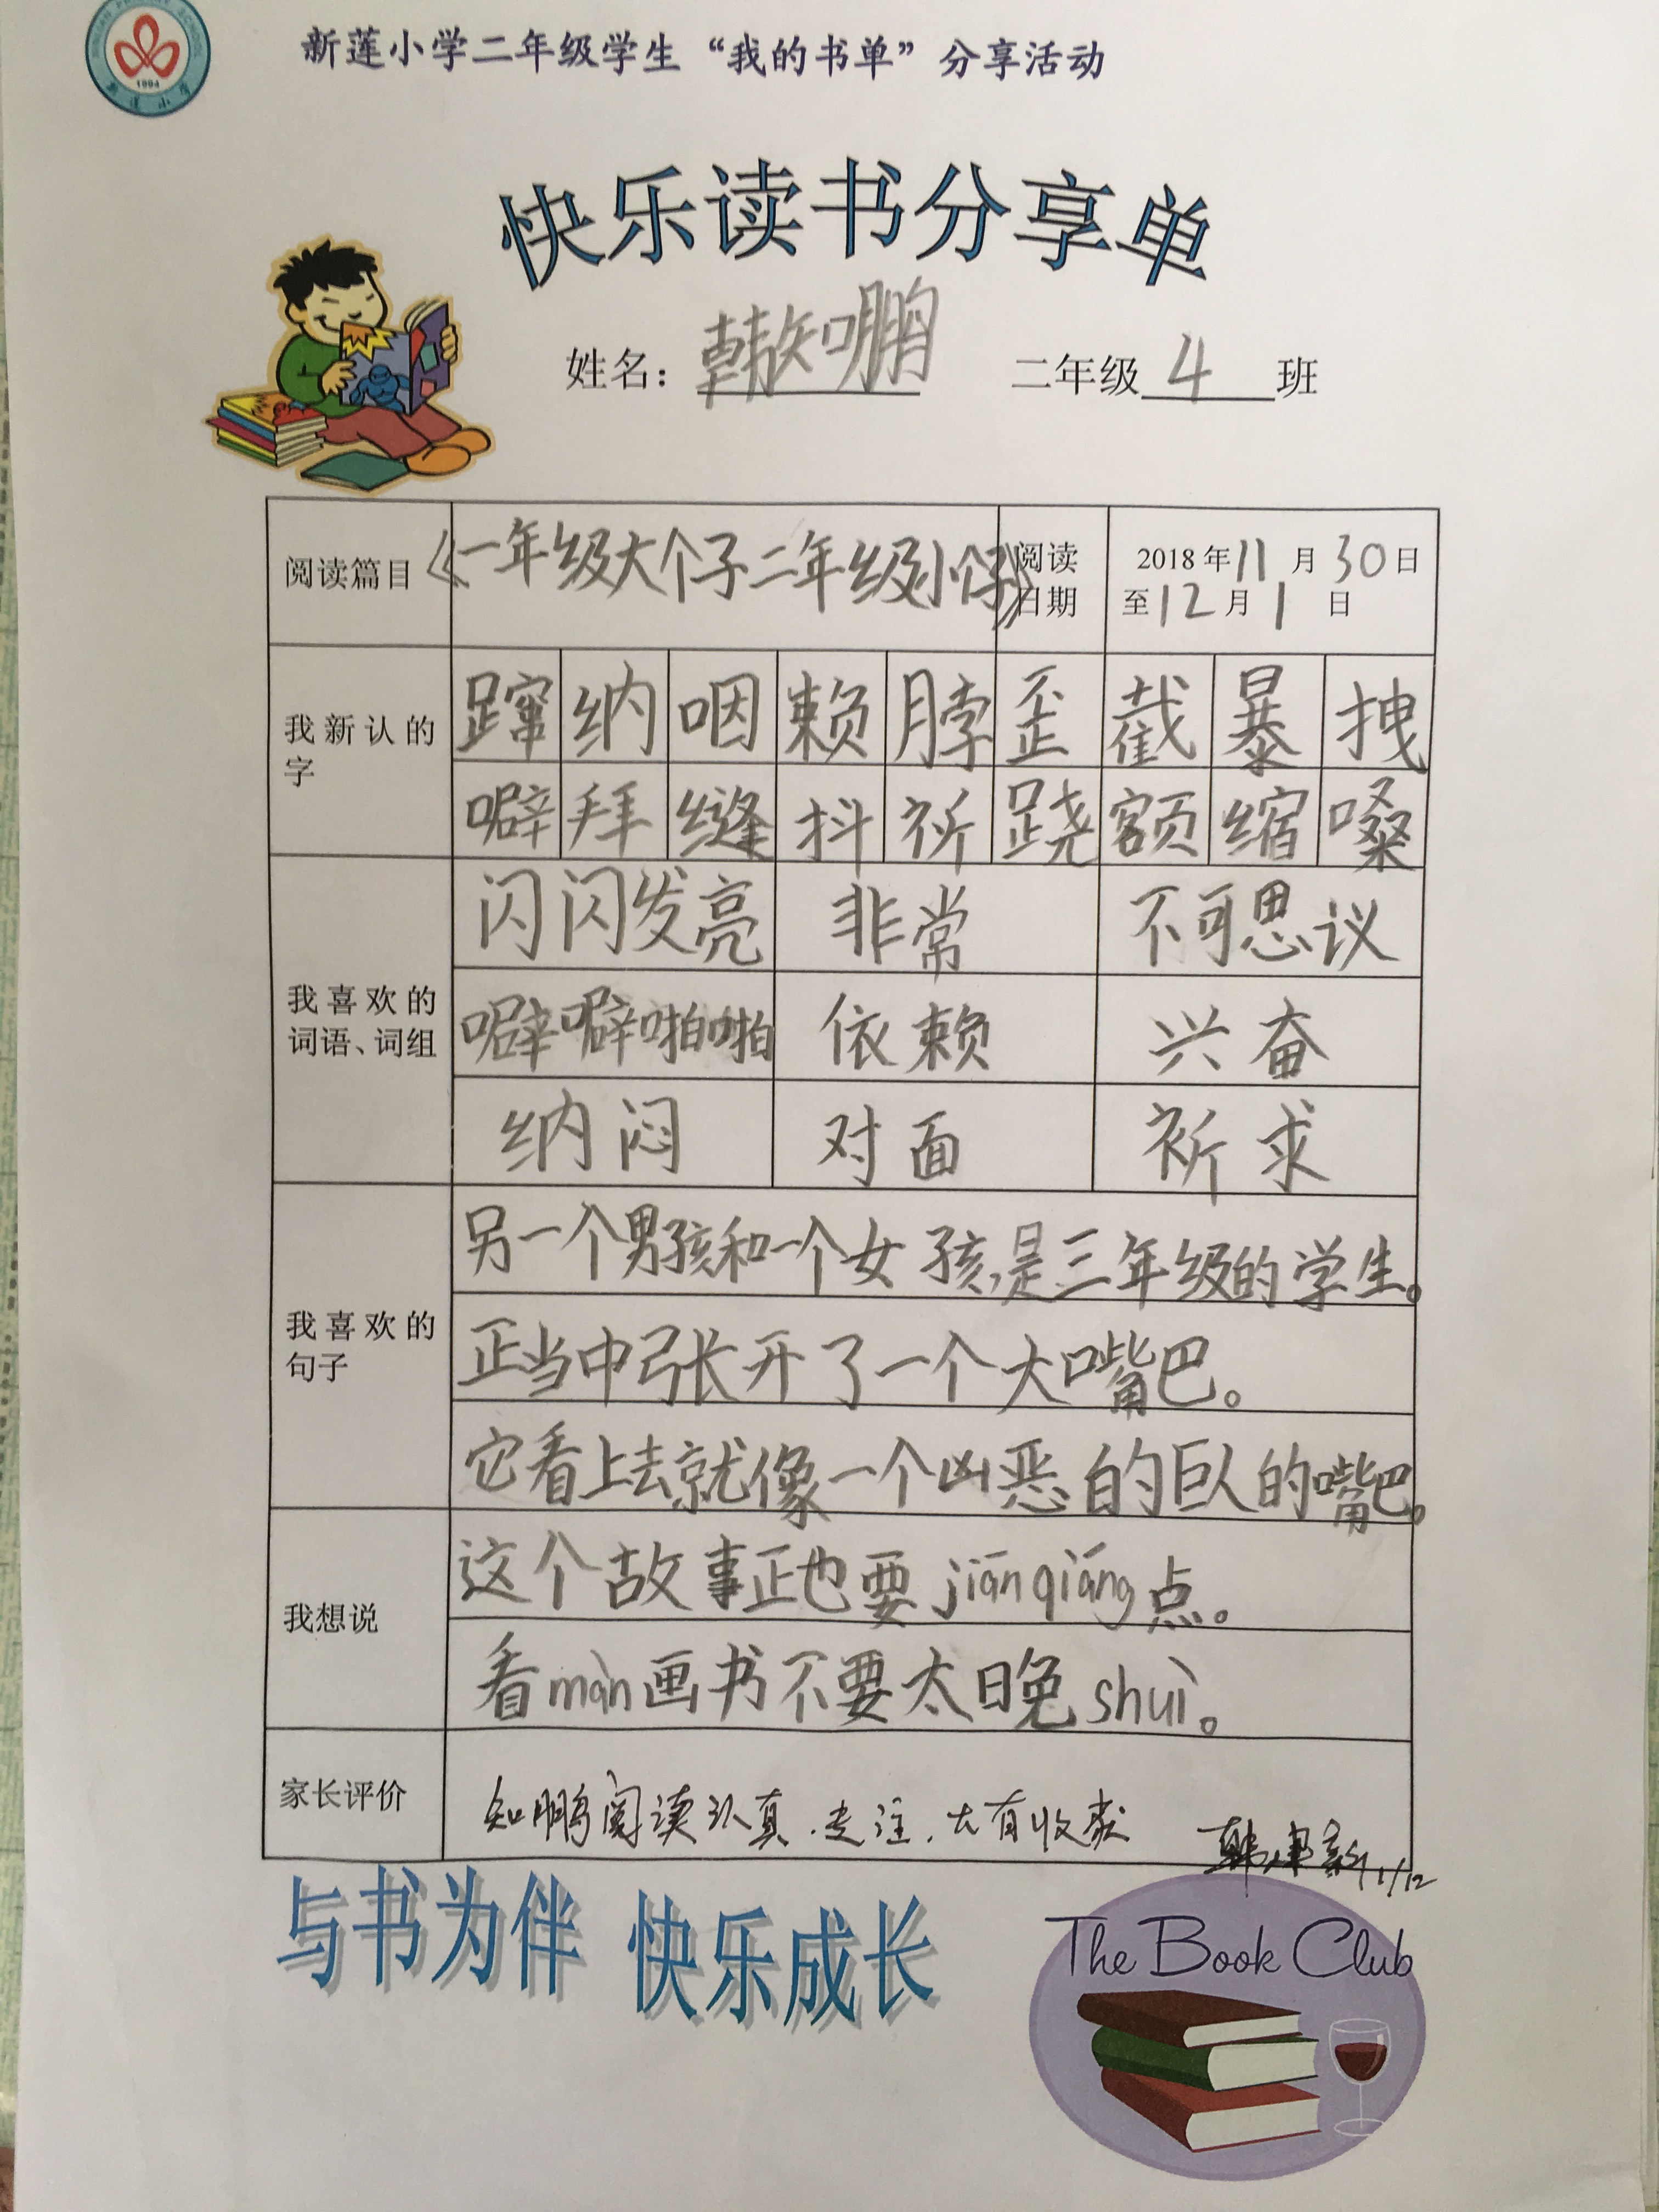 新莲小学二年级学生“我的书单”分享活动
1994
新莲小学
快乐读书分享单
姓名：韩知鹏 二年级4班
阅读篇目 《一年级大个子二年级小个子》 阅读日期 2018年11月30日至12月1日
我新认的字
蹿 纳 咽 赖 脖 歪 截 暴 拽
噼 拜 缝 抖 祈 跷 额 缩 嗓
我喜欢的词语、词组
闪闪发亮 非常 不可思议
噼噼啪啪 依赖 兴奋
纳闷 对面 祈求
我喜欢的句子
另一个男孩和一个女孩，是三年级的学生。
正当中张开了一个大嘴巴。
它看上去就像一个凶恶的巨人的嘴巴。
我想说
这个故事正也要jiānqiáng点。
看màn画书不要太晚shuì。
家长评价
知鹏阅读认真、专注，大有收获
韩建新 1/12
与书为伴 快乐成长
The Book Club